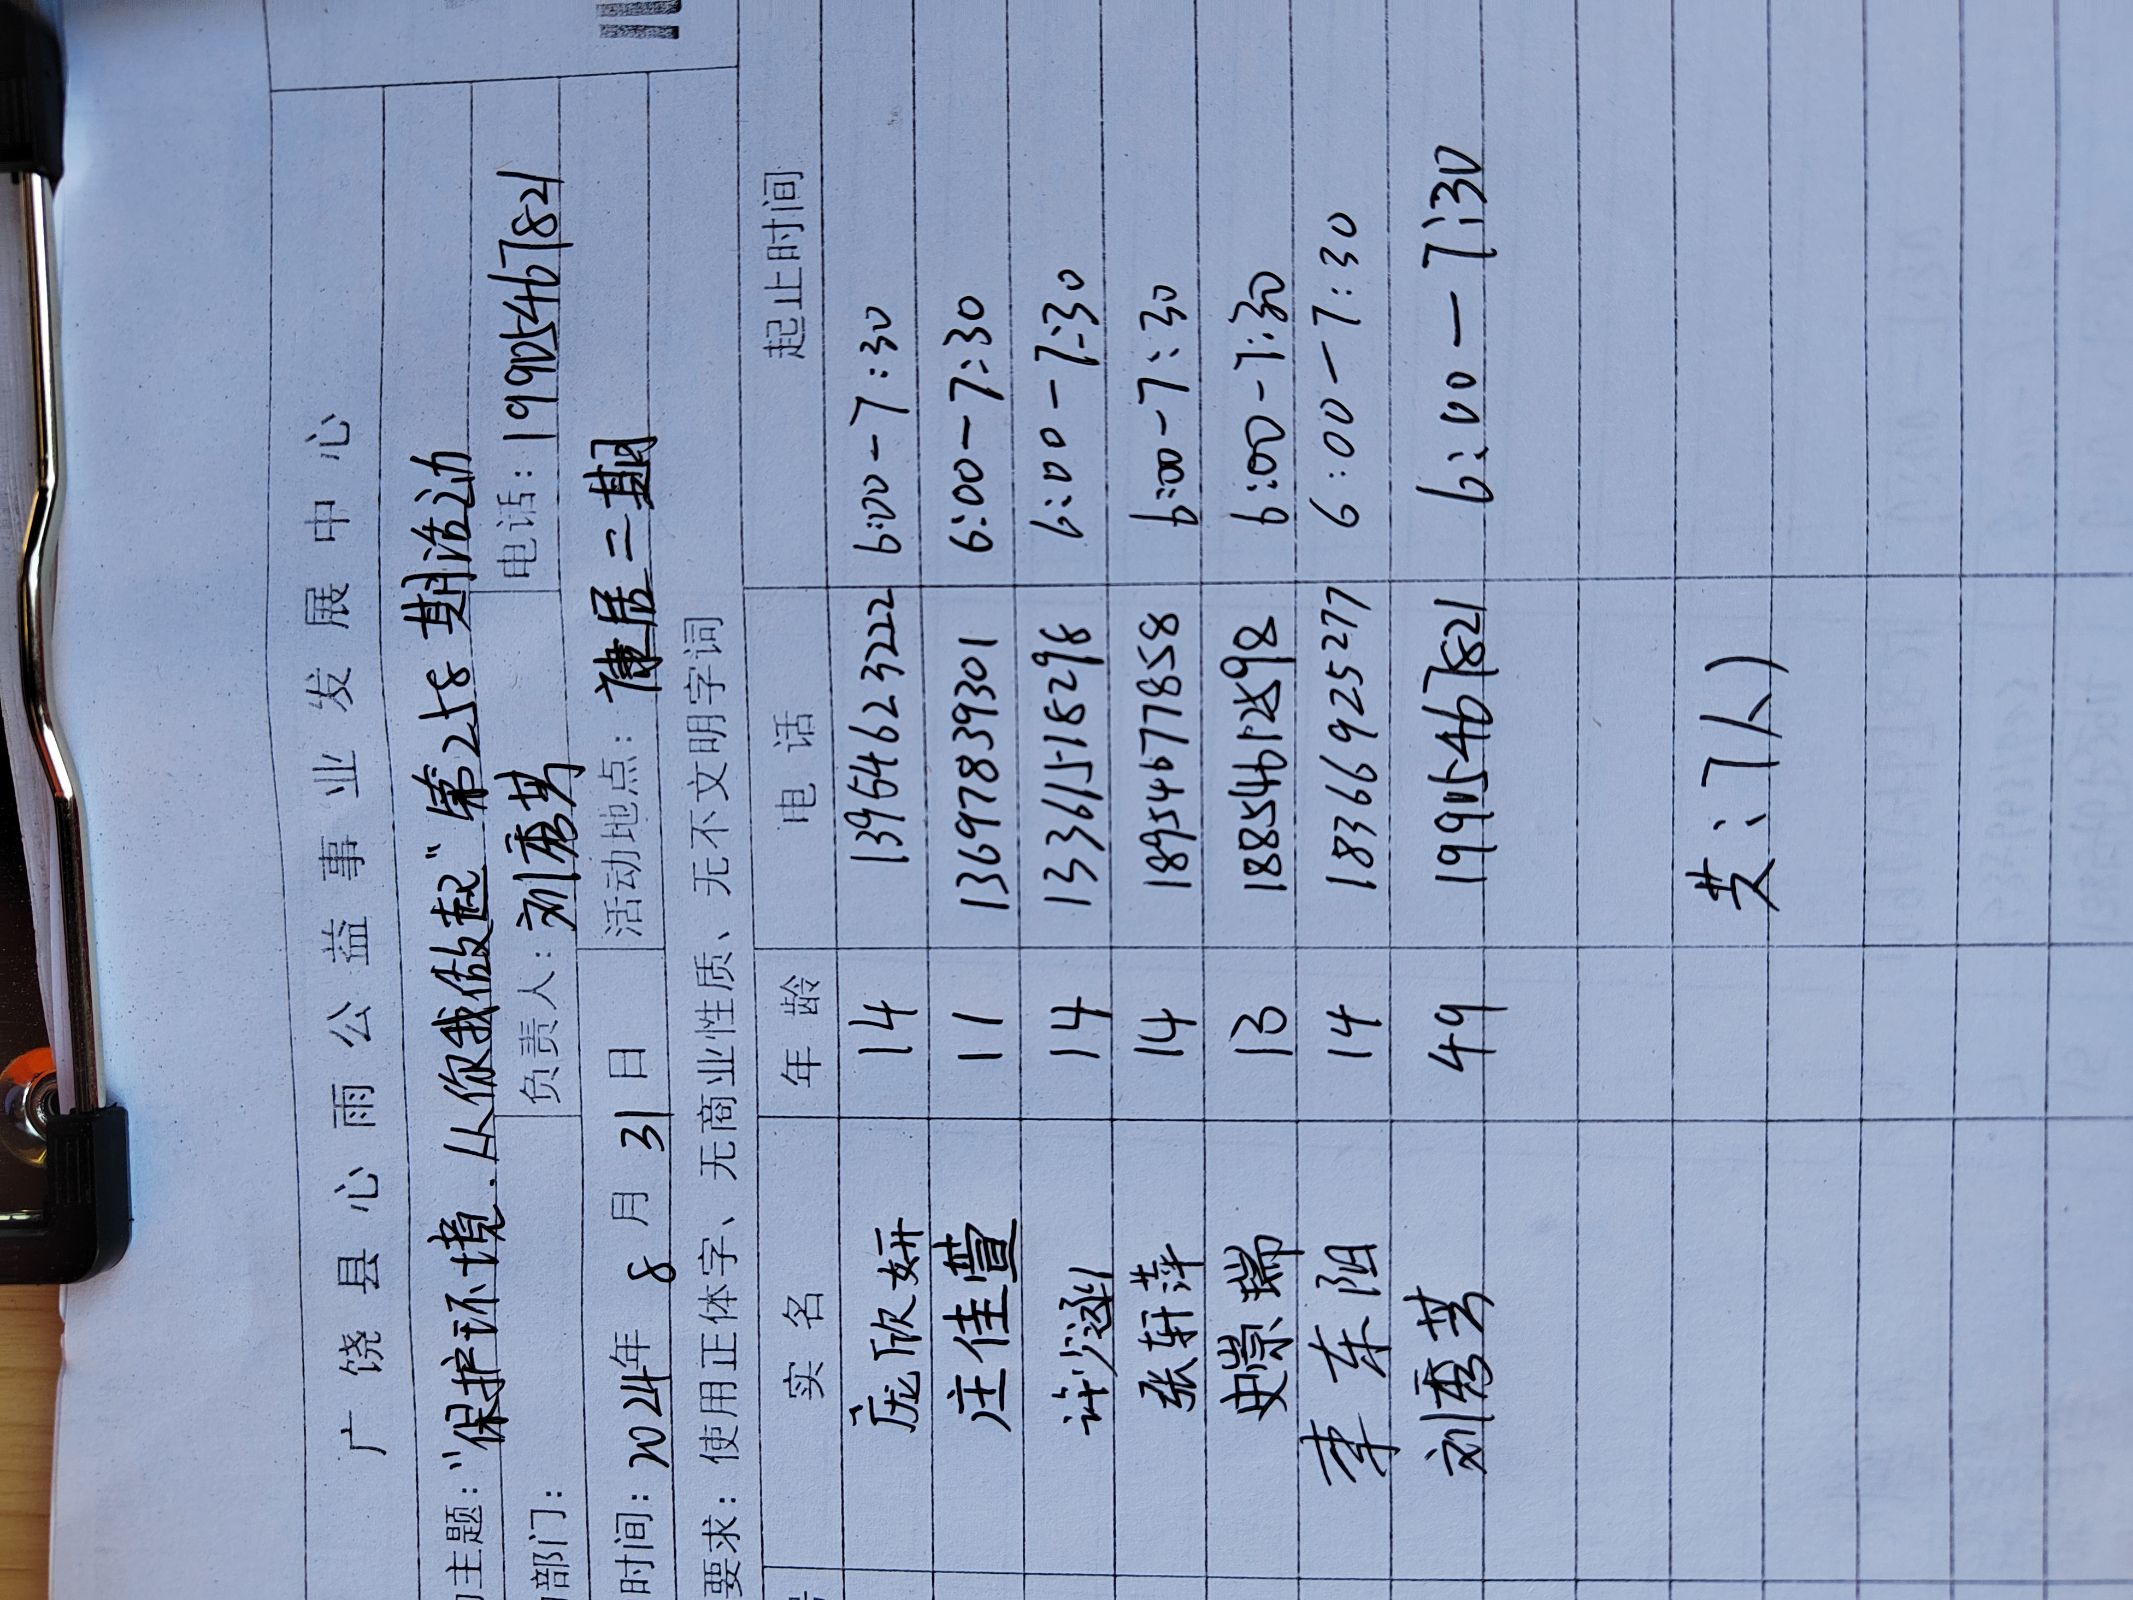 广饶县心雨公益事业发展中心
主题：“保护环境，从你我做起”第258期活动
部门： 负责人：刘秀芳 电话：19905467821
时间：2024年8月31日 活动地点：康居二期
要求：使用正体字、无商业性质、无不文明字词
实名 年龄 电话 起止时间
庞欣妍 14 13954623222 6:00-7:30
庄佳萱 11 13697839301 6:00-7:30
许涵 14 13361518298 6:00-7:30
张轩萍 14 18954677858 6:00-7:30
史崇瑞 13 18854612898 6:00-7:30
李东阳 14 18366925277 6:00-7:30
刘秀芳 49 19905467821 6:00-7:30
共：7人